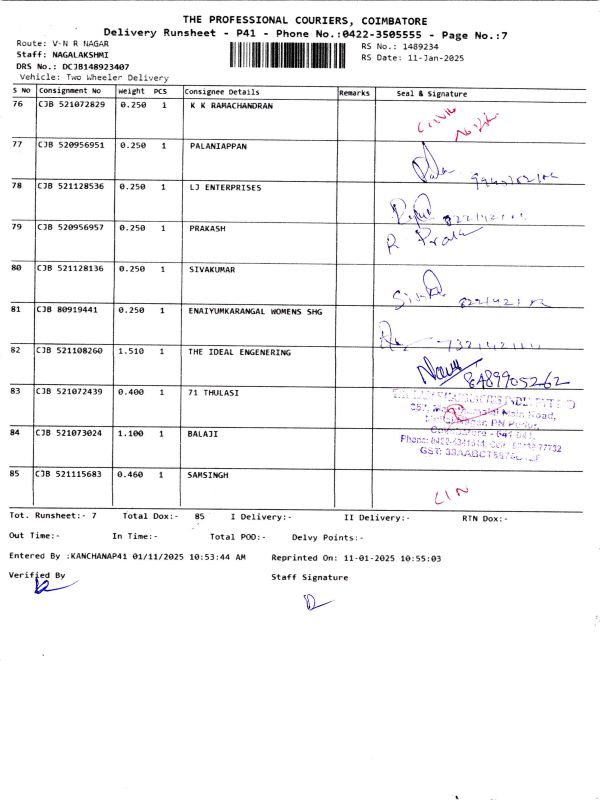 THE PROFESSIONAL COURIERS, COIMBATORE
Delivery Runsheet - P41 - Phone No.:0422-3505555 - Page No.:7
Route: V-N R NAGAR
RS No.: 1489234
Staff: NAGALAKSHMI
RS Date: 11-Jan-2025
DRS No.: DCJB148923407
Vehicle: Two Wheeler Delivery
S No Consignment No Weight PCS Consignee Details Remarks Seal & Signature
76 CJB 521072829 0.250 1 K K RAMACHANDRAN
77 CJB 520956951 0.250 1 PALANIAPPAN
78 CJB 521128536 0.250 1 LJ ENTERPRISES
79 CJB 520956957 0.250 1 PRAKASH
R Praka
80 CJB 521128136 0.250 1 SIVAKUMAR
81 CJB 80919441 0.250 1 ENAIYUMKARANGAL WOMENS SHG
82 CJB 521108260 1.510 1 THE IDEAL ENGENERING
8489905262
83 CJB 521072439 0.400 1 71 THULASI
Main Road,
84 CJB 521073024 1.100 1 BALAJI
Coimbatore - 641 041.
85 CJB 521115683 0.460 1 SAMSINGH
Tot. Runsheet:- 7 Total Dox:- 85 I Delivery:- II Delivery:- RTN Dox:-
Out Time:- In Time:- Total POD:- Delvy Points:-
Entered By :KANCHANAP41 01/11/2025 10:53:44 AM Reprinted On: 11-01-2025 10:55:03
Verified By Staff Signature